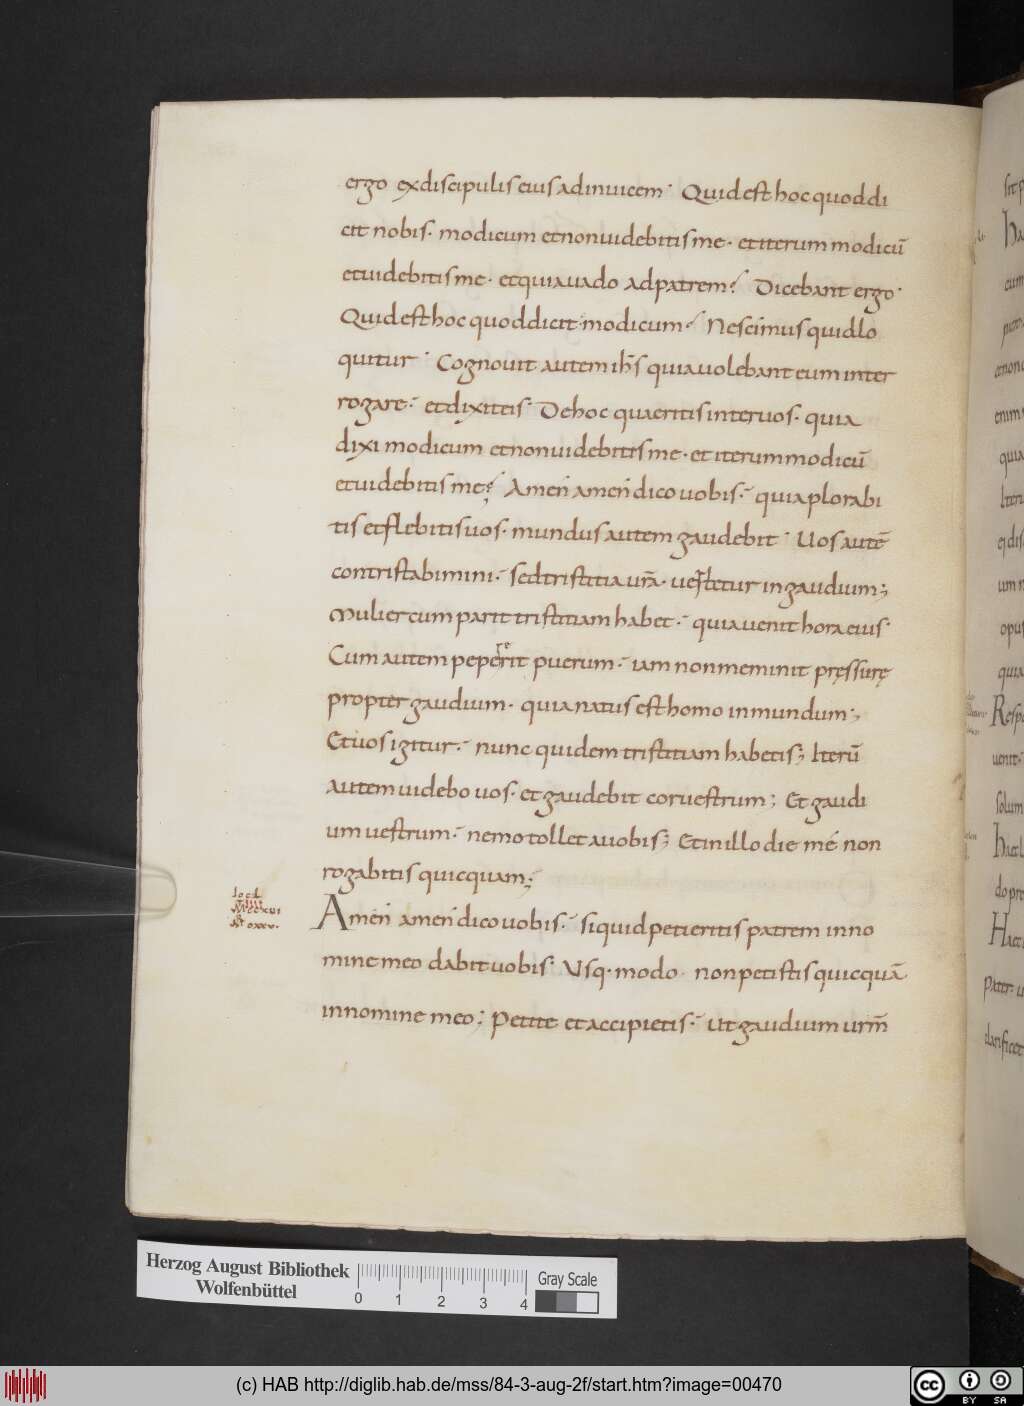 ergo ex discipulis eius adinuicem· Quid est hoc quod di
cit nobis· modicum et non uidebitis me· et iterum modicū
et uidebitis me· et quia uado ad patrem? Dicebant ergo·
Quid est hoc quod dicit modicum? Nescimus quid lo
quitur· Cognouit autem ihs̄ quia uolebant eum inter
rogare· et dixit eis· De hoc quaeritis inter uos· quia
dixi modicum et non uidebitis me· et iterum modicū
et uidebitis me? Amen amen dico uobis· quia plorabi
tis et flebitis uos· mundus autem gaudebit· Uos autē
contristabimini· sed tristitia ur̄a· uertetur in gaudium;
Mulier cum parit tristitiam habet· quia uenit hora eius·
Cum autem peperit puerum· iam non meminit pressurę
propter gaudium· quia natus est homo in mundum;
Et uos igitur· nunc quidem tristitiam habetis; Iterū
autem uidebo uos· et gaudebit cor uestrum; Et gaudi
um uestrum· nemo tollet a uobis; Et in illo die mé non
rogabitis quicquam;
Amen amen dico uobis· si quid petieritis patrem in no
mine meo dabit uobis· Usq· modo· non petistis quicquā
in nomine meo; Petite et accipietis· ut gaudium urm̄
Herzog August Bibliothek
Wolfenbüttel
0 1 2 3 4
Gray Scale
(c) HAB http://diglib.hab.de/mss/84-3-aug-2f/start.htm?image=00470
cc BY SA